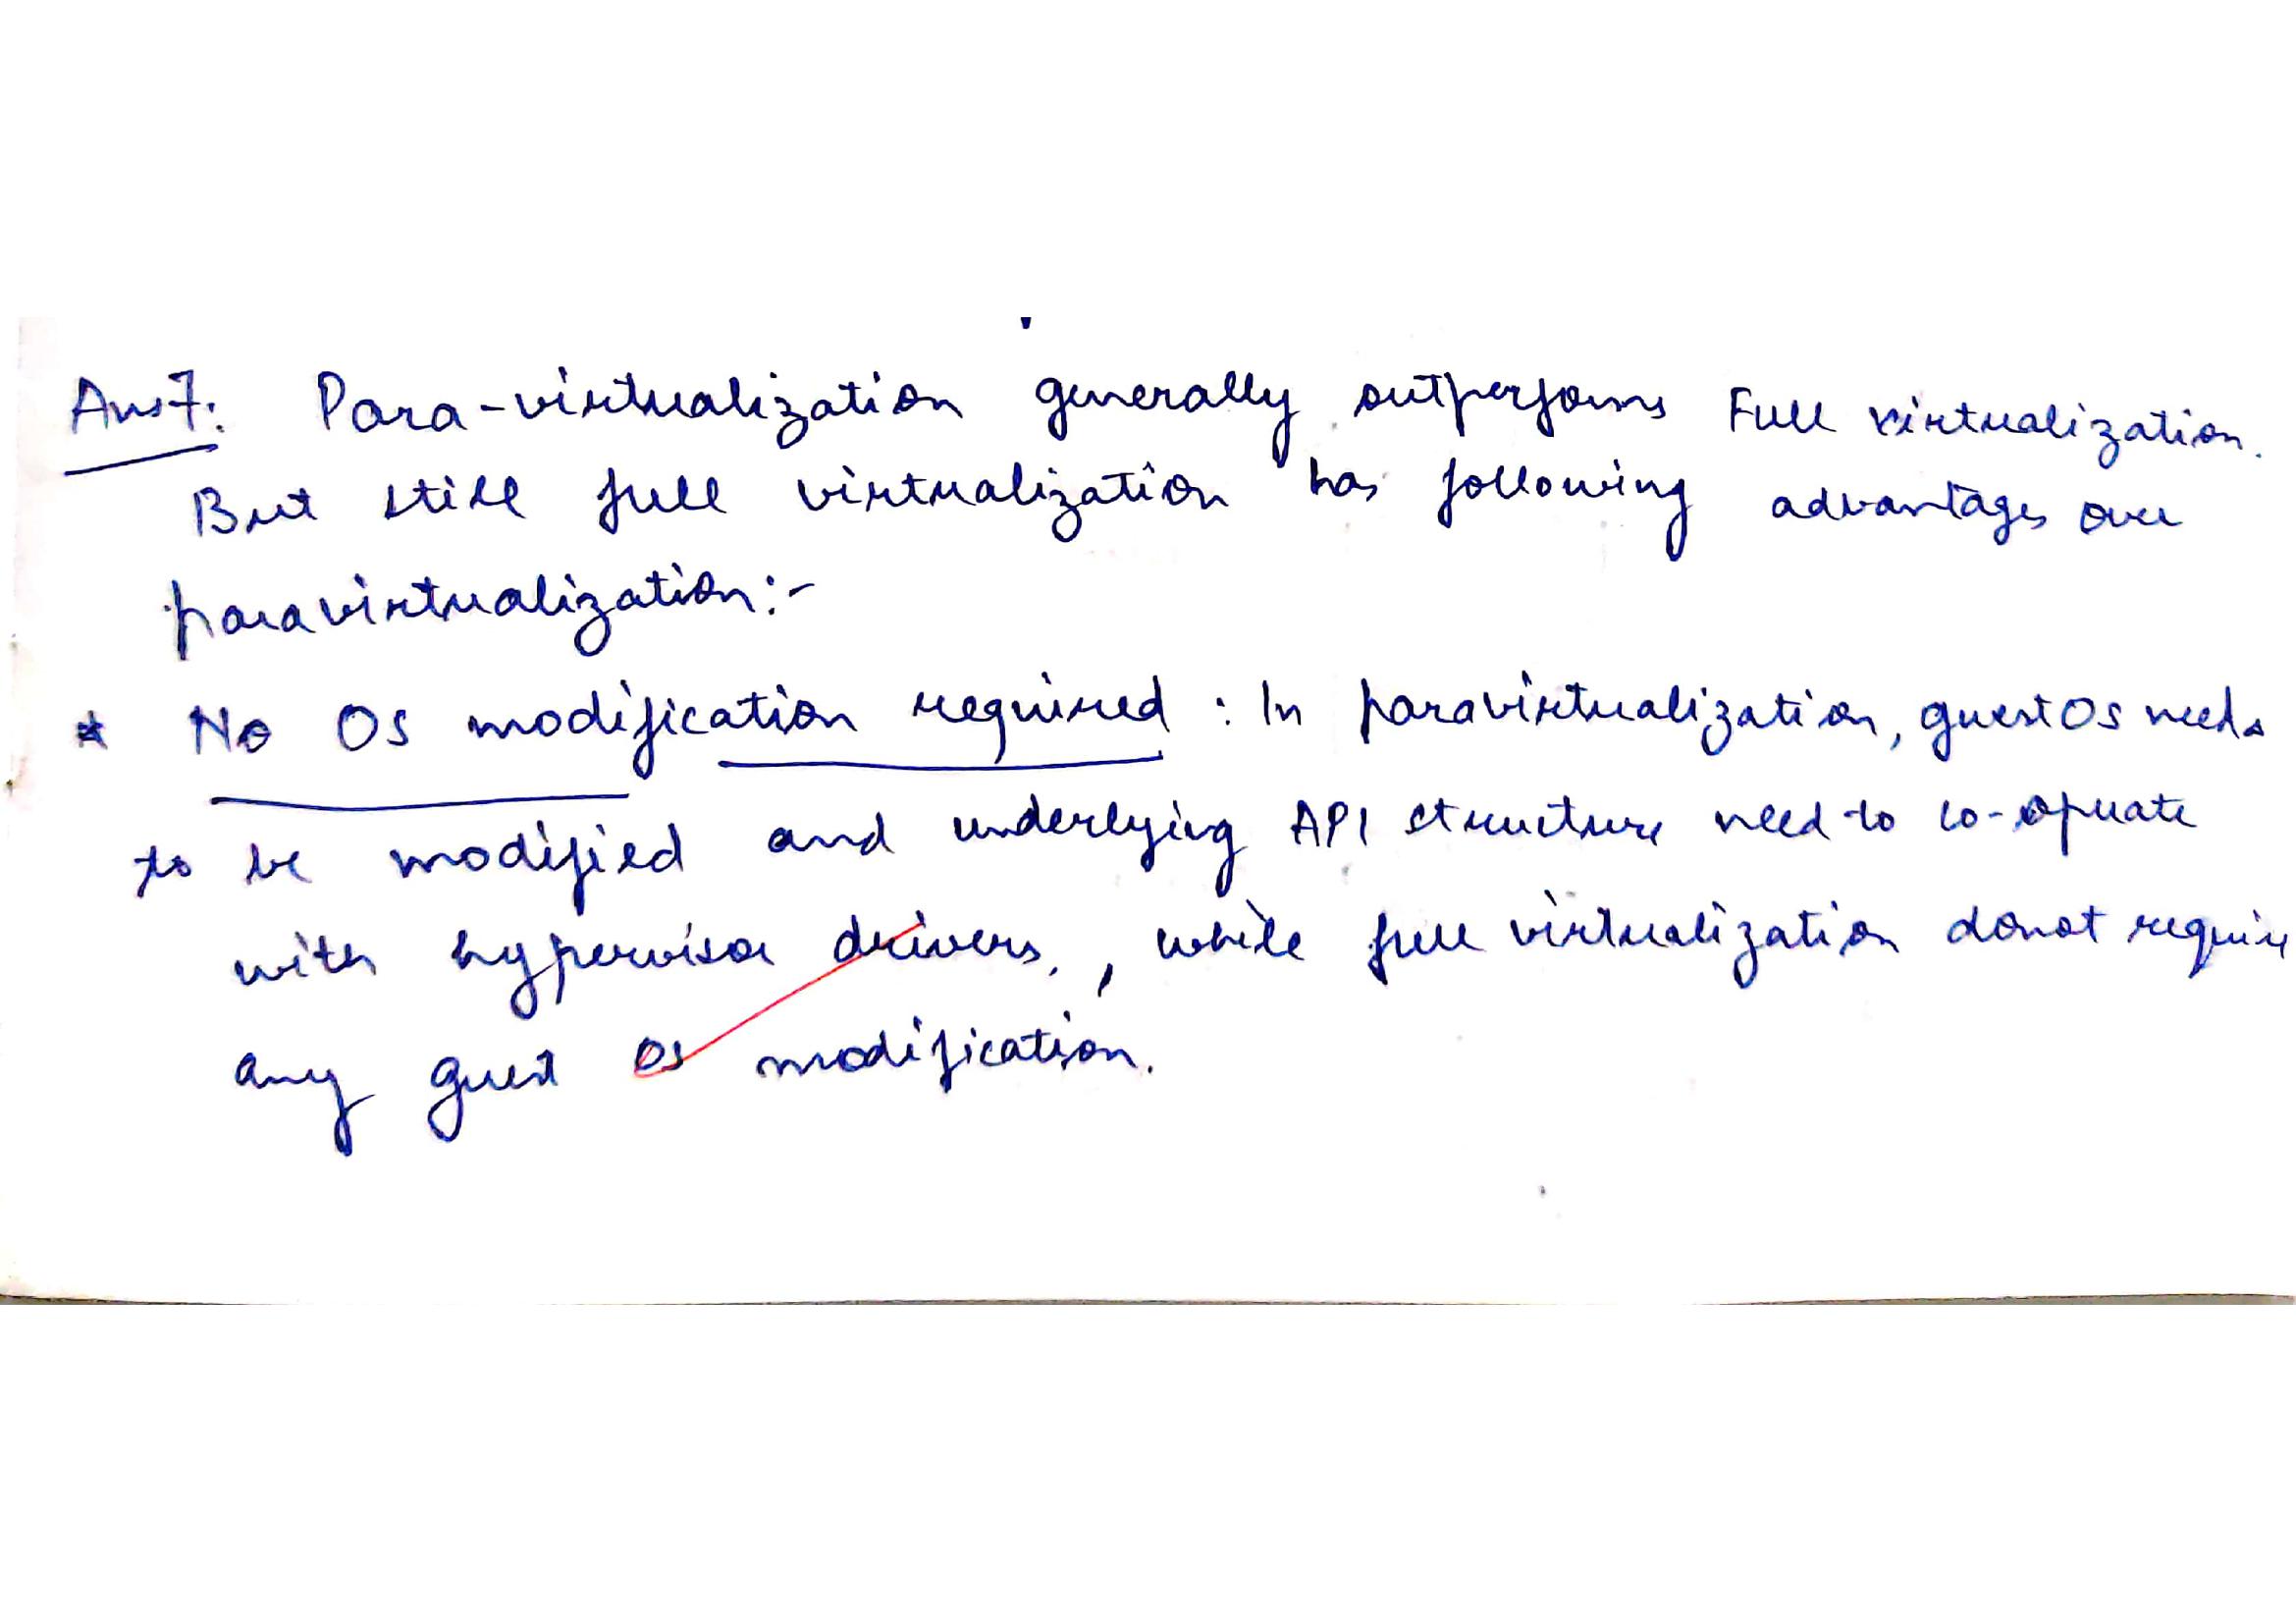 Ans7: Para-virtualization generally outperforms Full virtualization.
But still full virtualization has following advantages over
paravirtualization:-
* No OS modification required : In paravirtualization, guest OS needs
to be modified and underlying API structure need to co-operate
with hypervisor drivers, while full virtualization donot require
any guest OS modification.